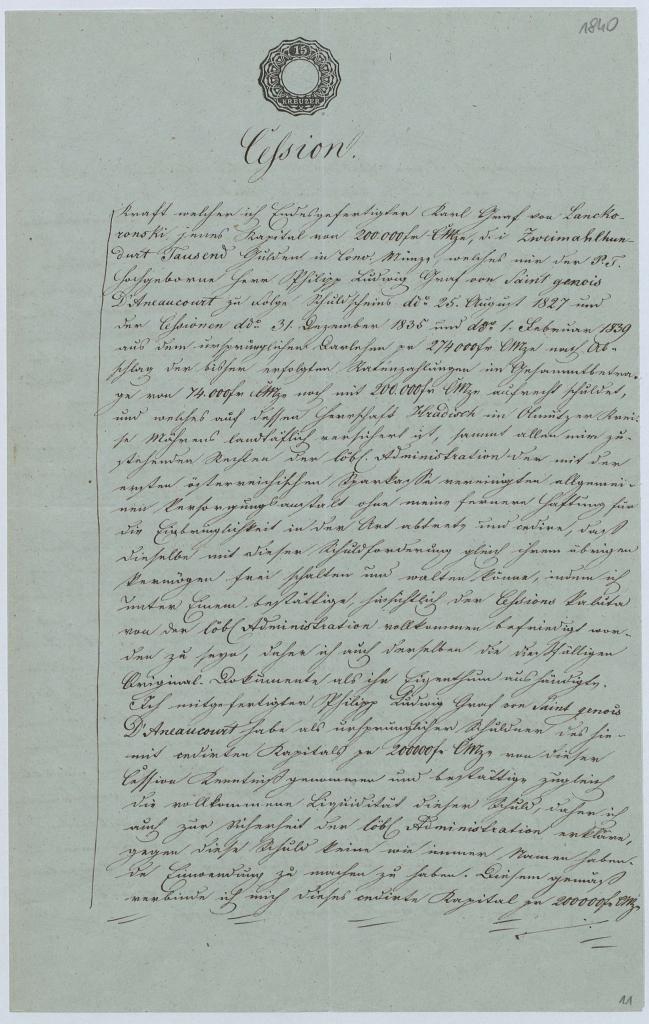 1840
15
KREUZER
Cession.
Kraft welcher ich Endesgefertigter Karl Graf von Lancko-
ronski jenes Kapital von 200.000 fr CMze, d. i. Zweimahlhun-
dert Tausend Gulden in Conv. Münze, welches mir der P. T.
Hochgeborne Herr Philipp Ludwig Graf von Saint genois
D'Aneaucourt zu Folge Schuldscheins ddo 25. August 1827 und
der Cessionen ddo 31. Dezember 1835 und ddo 1. Februar 1839
aus dem ursprünglichen Darlehen pr 274000 fr CMze nach Ab-
schlag der bisher erfolgten Ratenzahlungen im Gesammtbetra-
ge von 74.000 fr CMze noch mit 200.000 fr CMze aufrecht schuldet,
und welches auf dessen Herrschaft Hradisch im Olmützer Krei-
se Mährens landtäflich versichert ist, sammt allen mir zu-
stehenden Rechten der löbl. Administration der mit der
ersten österreichischen Sparkasse vereinigten allgemei-
nen Versorgungsanstalt ohne meine fernere Haftung für
die Einbringlichkeit in der Art abtrete und cedire, daß
dieselbe mit dieser Schuldforderung gleich ihrem übrigen
Vermögen frei schalten und walten könne, indem ich
unter Einem bestättige, hinsichtlich der Cessions Valuta
von der löbl Administration vollkommen befriedigt wor-
den zu seyn, daher ich auch derselben die dießfälligen
Original-Dokumente als ihr Eigenthum aushändigte.
Ich mitgefertigter Philipp Ludwig Graf von Saint genois
D'Aneaucourt habe als ursprünglicher Schuldner des hie-
mit cedirten Kapitals pr 200000 fr CMze von dieser
Cession Kenntniß genommen und bestättige zugleich
die vollkommene Liquidität dieser Schuld, daher ich
auch zur Sicherheit der löbl Administration erkläre,
gegen diese Schuld keine wie immer Namen haben-
de Einwendung zu machen zu haben. Diesem gemäß
verbinde ich mich dieses cedirte Kapital pr 200000 fr CMz
11